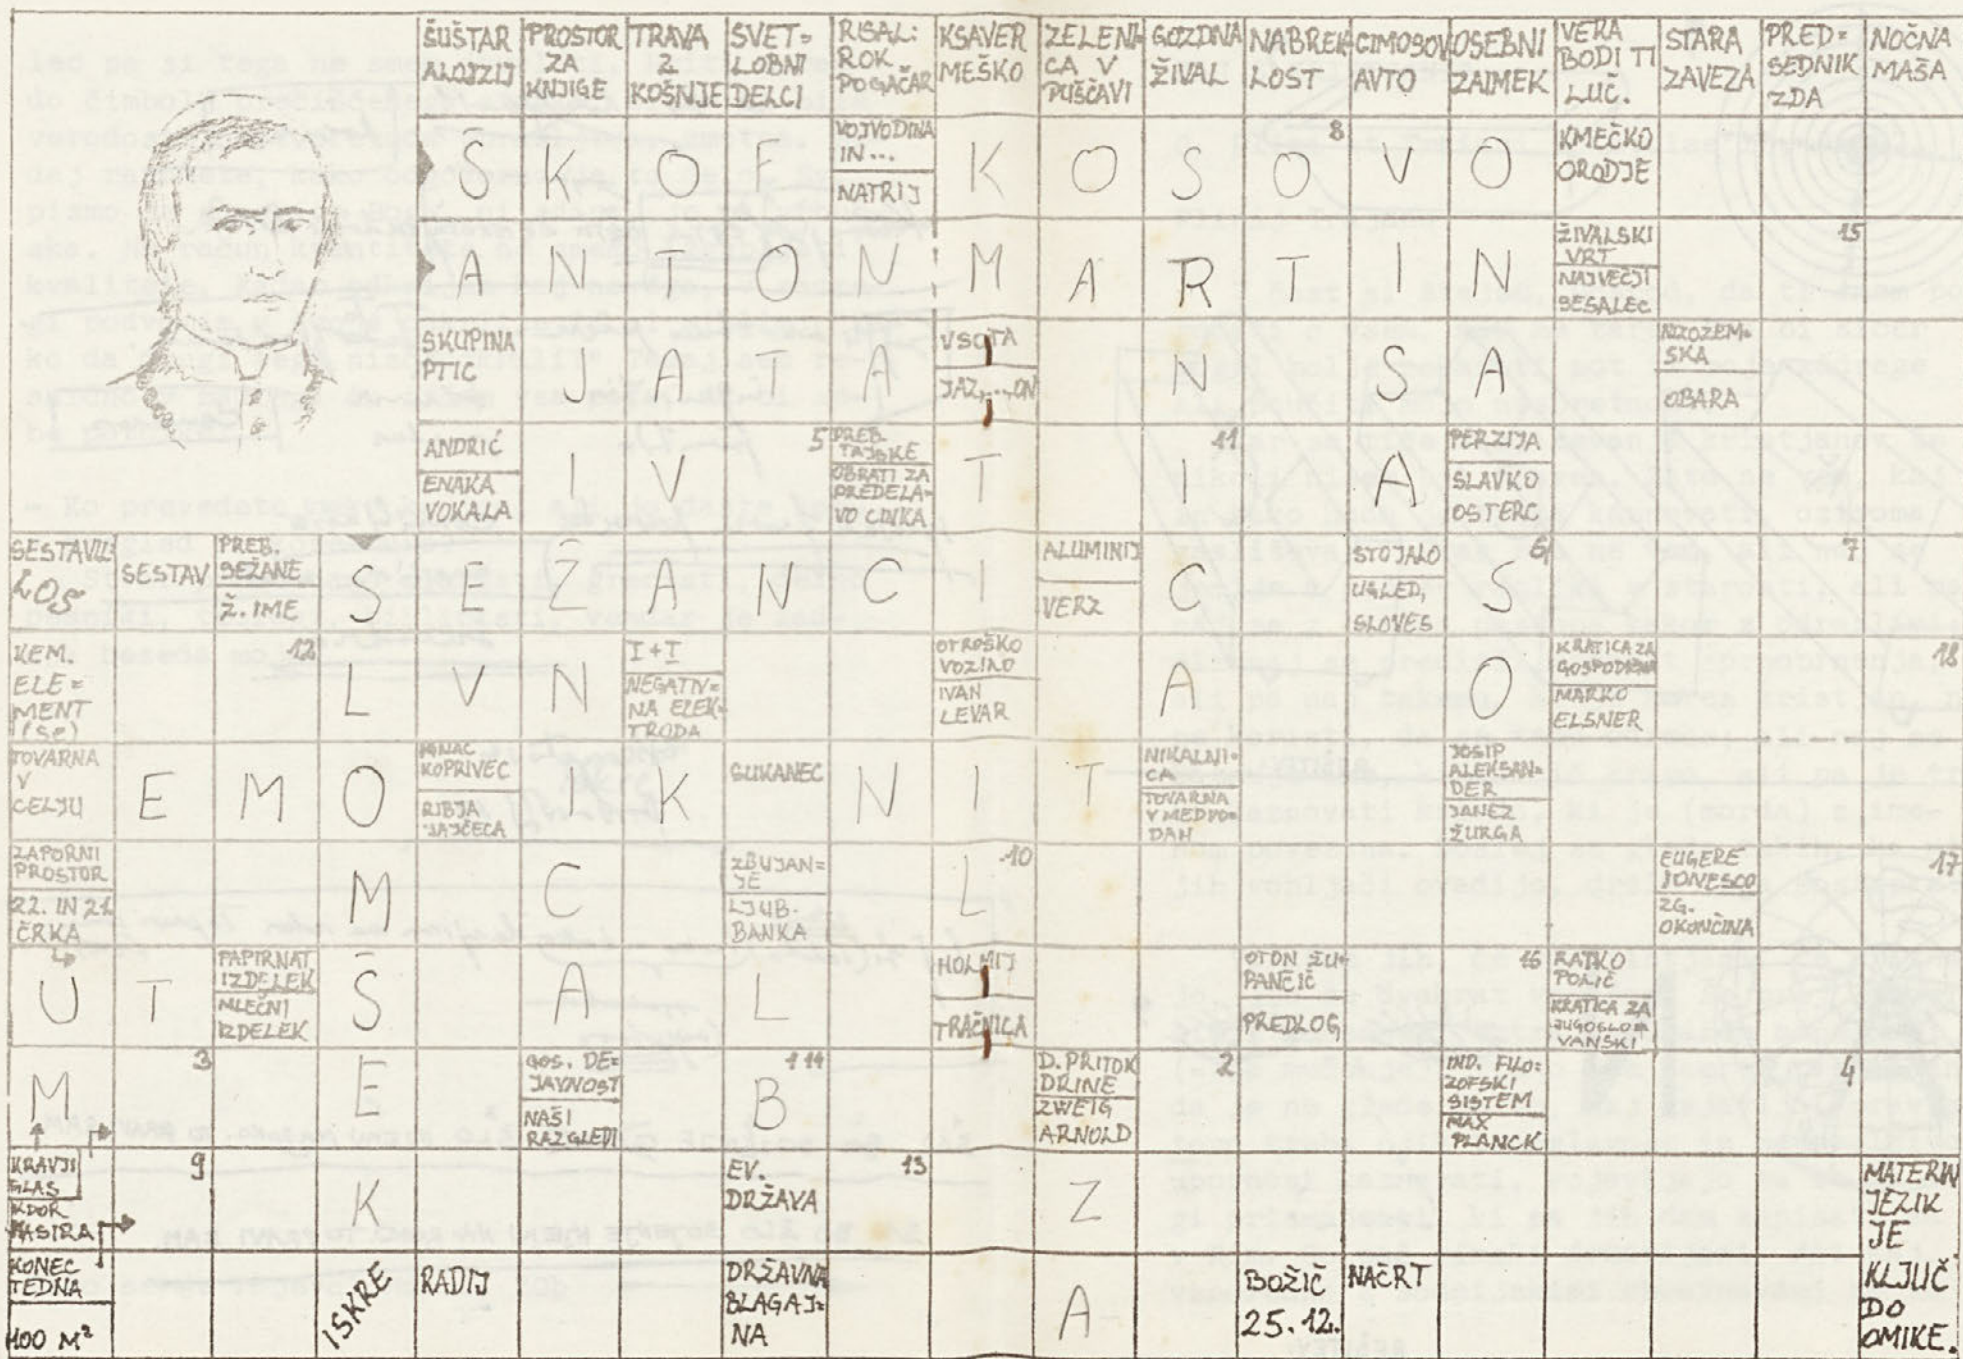 ŠUŠTAR ALOJZIJ
PROSTOR ZA KNJIGE
TRAVA 2 KOŠNJE
SVET= LOBNI DELCI
RISAL: ROK POGAČAR
KSAVER MEŠKO
ZELENI- CA V PUŠČAVI
GOZDNA ŽIVAL
NABREK- LOST
CIMOSOV AVTO
OSEBNI ZAIMEK
VERA BODI TI LUČ.
STARA ZAVEZA
PRED= SEDNIK ZDA
NOČNA MAŠA
Š K O F
VOJVODINA IN...
NATRIJ
K O S O V O
8
KMEČKO ORODJE
A N T O N M A R T I N
ŽIVALSKI VRT
NAJVEČJI SESALEC
15
SKUPINA PTIC
J A T A
VSOTA
JAZ,...,ON
N S A
NIZOZEM- SKA
OBARA
ANDRIĆ
ENAKA VOKALA
I V
5
PREB. TAJSKE
OBRATI ZA PREDELA- VO CINKA
T I A
11
PERZIJA
SLAVKO OSTERC
SESTAVIL: LOS
SESTAV
PREB. SEŽANE
Ž. IME
S E Ž A N C I
ALUMINIJ
VERZ
C
STOJALO
UGLED, SLOVES
6
S
7
KEM. ELE= MENT (se)
12
L V N
I+I
NEGATIV= NA ELEK- TRODA
OTROŠKO VOZILO
IVAN LEVAR
A O
KRATICA ZA GOSPODIČNA
MARKO ELSNER
18
TOVARNA V CELJU
E M O
IGNAC KOPRIVEC
RIBJA JAJČECA
I K
SUKANEC
N I T
NIKALNI- CA
TOVARNA V MEDVO- DAH
JOSIP ALEKSAN= DER
JANEZ ŽURGA
ZAPORNI PROSTOR
22. IN 21. ČRKA
M C
ZBUJAN= JE
LJUB. BANKA
L
10
EUGERE IONESCO
ZG. OKONČINA
17
U T
PAPIRNAT IZDELEK
MLEČNI IZDELEK
Š A L
HOLMIJ
TRAČNICA
OTON ŽU- PANČIČ
PREDLOG
16
RATKO POLIČ
KRATICA ZA JUGOSLO= VANSKI
M
3
E
GOS. DE= JAVNOST
NAŠI RAZGLEDI
1 14
B
D. PRITOK DRINE
ZWEIG ARNOLD
2
IND. FILO= ZOFSKI SISTEM
MAX PLANCK
4
KRAVJI GLAS
KDOR MASIRA
9
K
EV. DRŽAVA
13
Z
MATERIN JEZIK JE
KONEC TEDNA
100 M²
ISKRE
RADIJ
DRŽAVNA BLAGAJ= NA
A
BOŽIČ 25.12.
NAČRT
KLJUČ DO OMIKE.